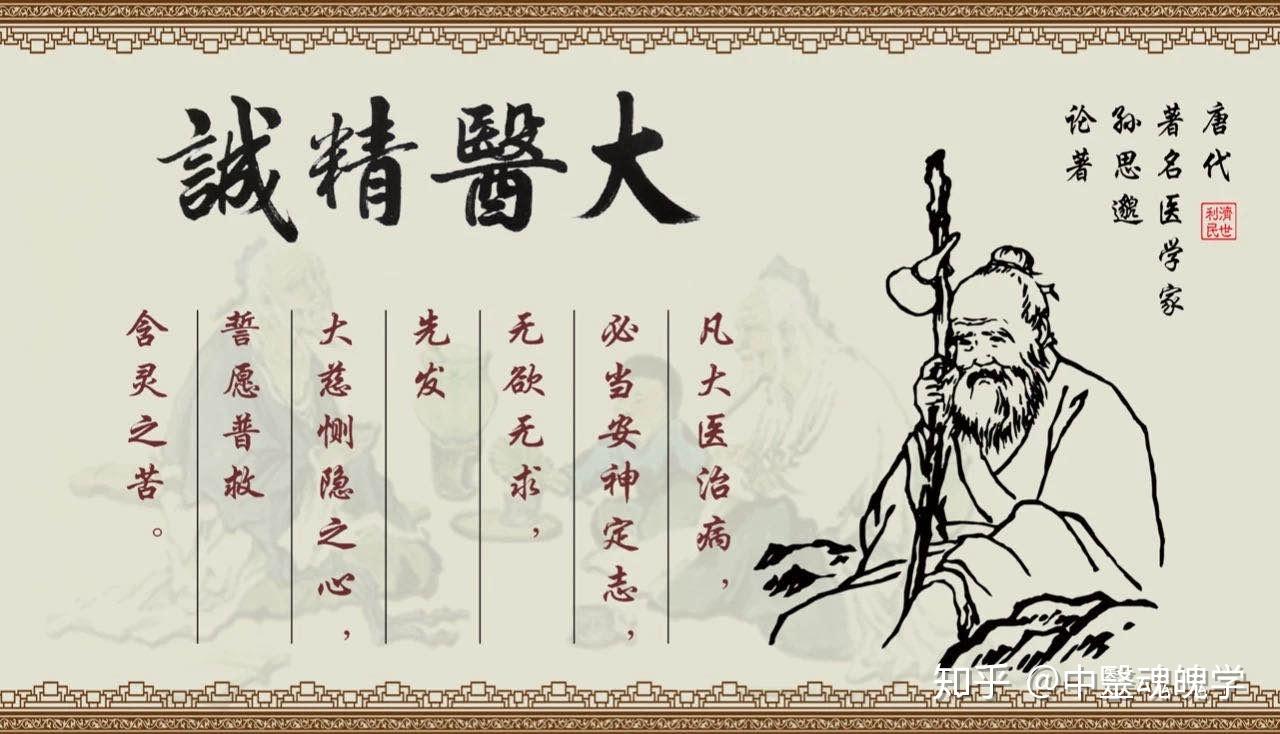 大醫精誠
唐代
著名医学家
孙思邈
论著
濟世
利民
凡大医治病，
必当安神定志，
无欲无求，
先发
大慈恻隐之心，
誓愿普救
含灵之苦。
知乎 @中毉魂魄学